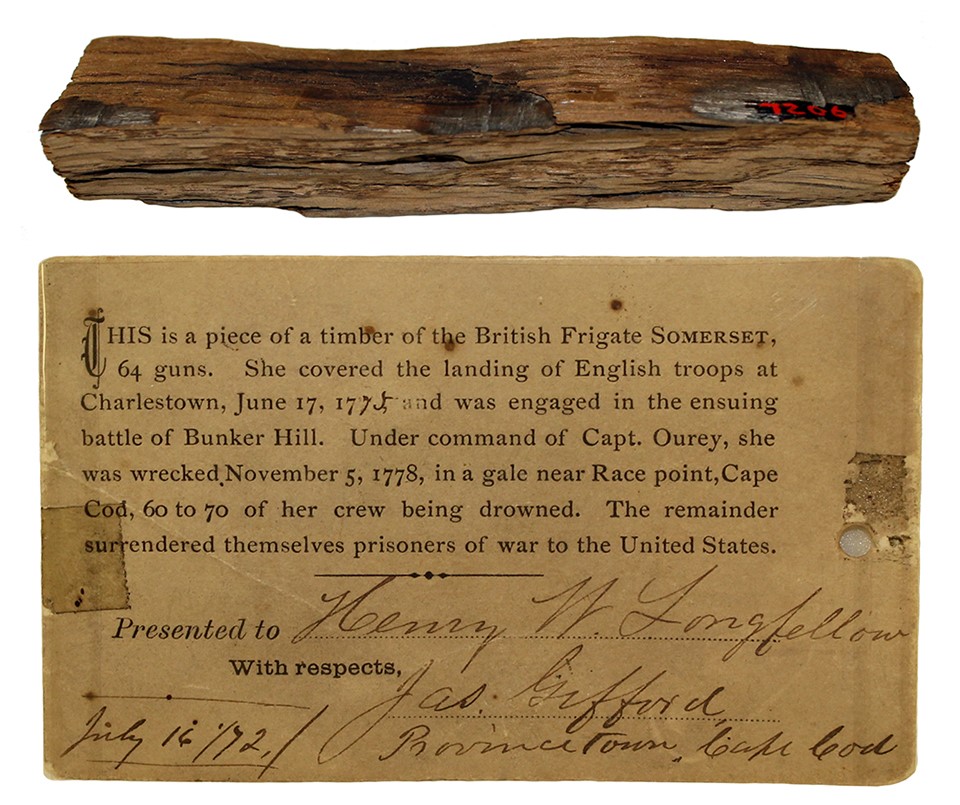 7206
THIS is a piece of a timber of the British Frigate SOMERSET,
64 guns. She covered the landing of English troops at
Charlestown, June 17, 1775 and was engaged in the ensuing
battle of Bunker Hill. Under command of Capt. Ourey, she
was wrecked November 5, 1778, in a gale near Race point, Cape
Cod, 60 to 70 of her crew being drowned. The remainder
surrendered themselves prisoners of war to the United States.
Presented to Henry W. Longfellow
With respects,
Jas. Gifford
July 16 '72, Provincetown, Cape Cod